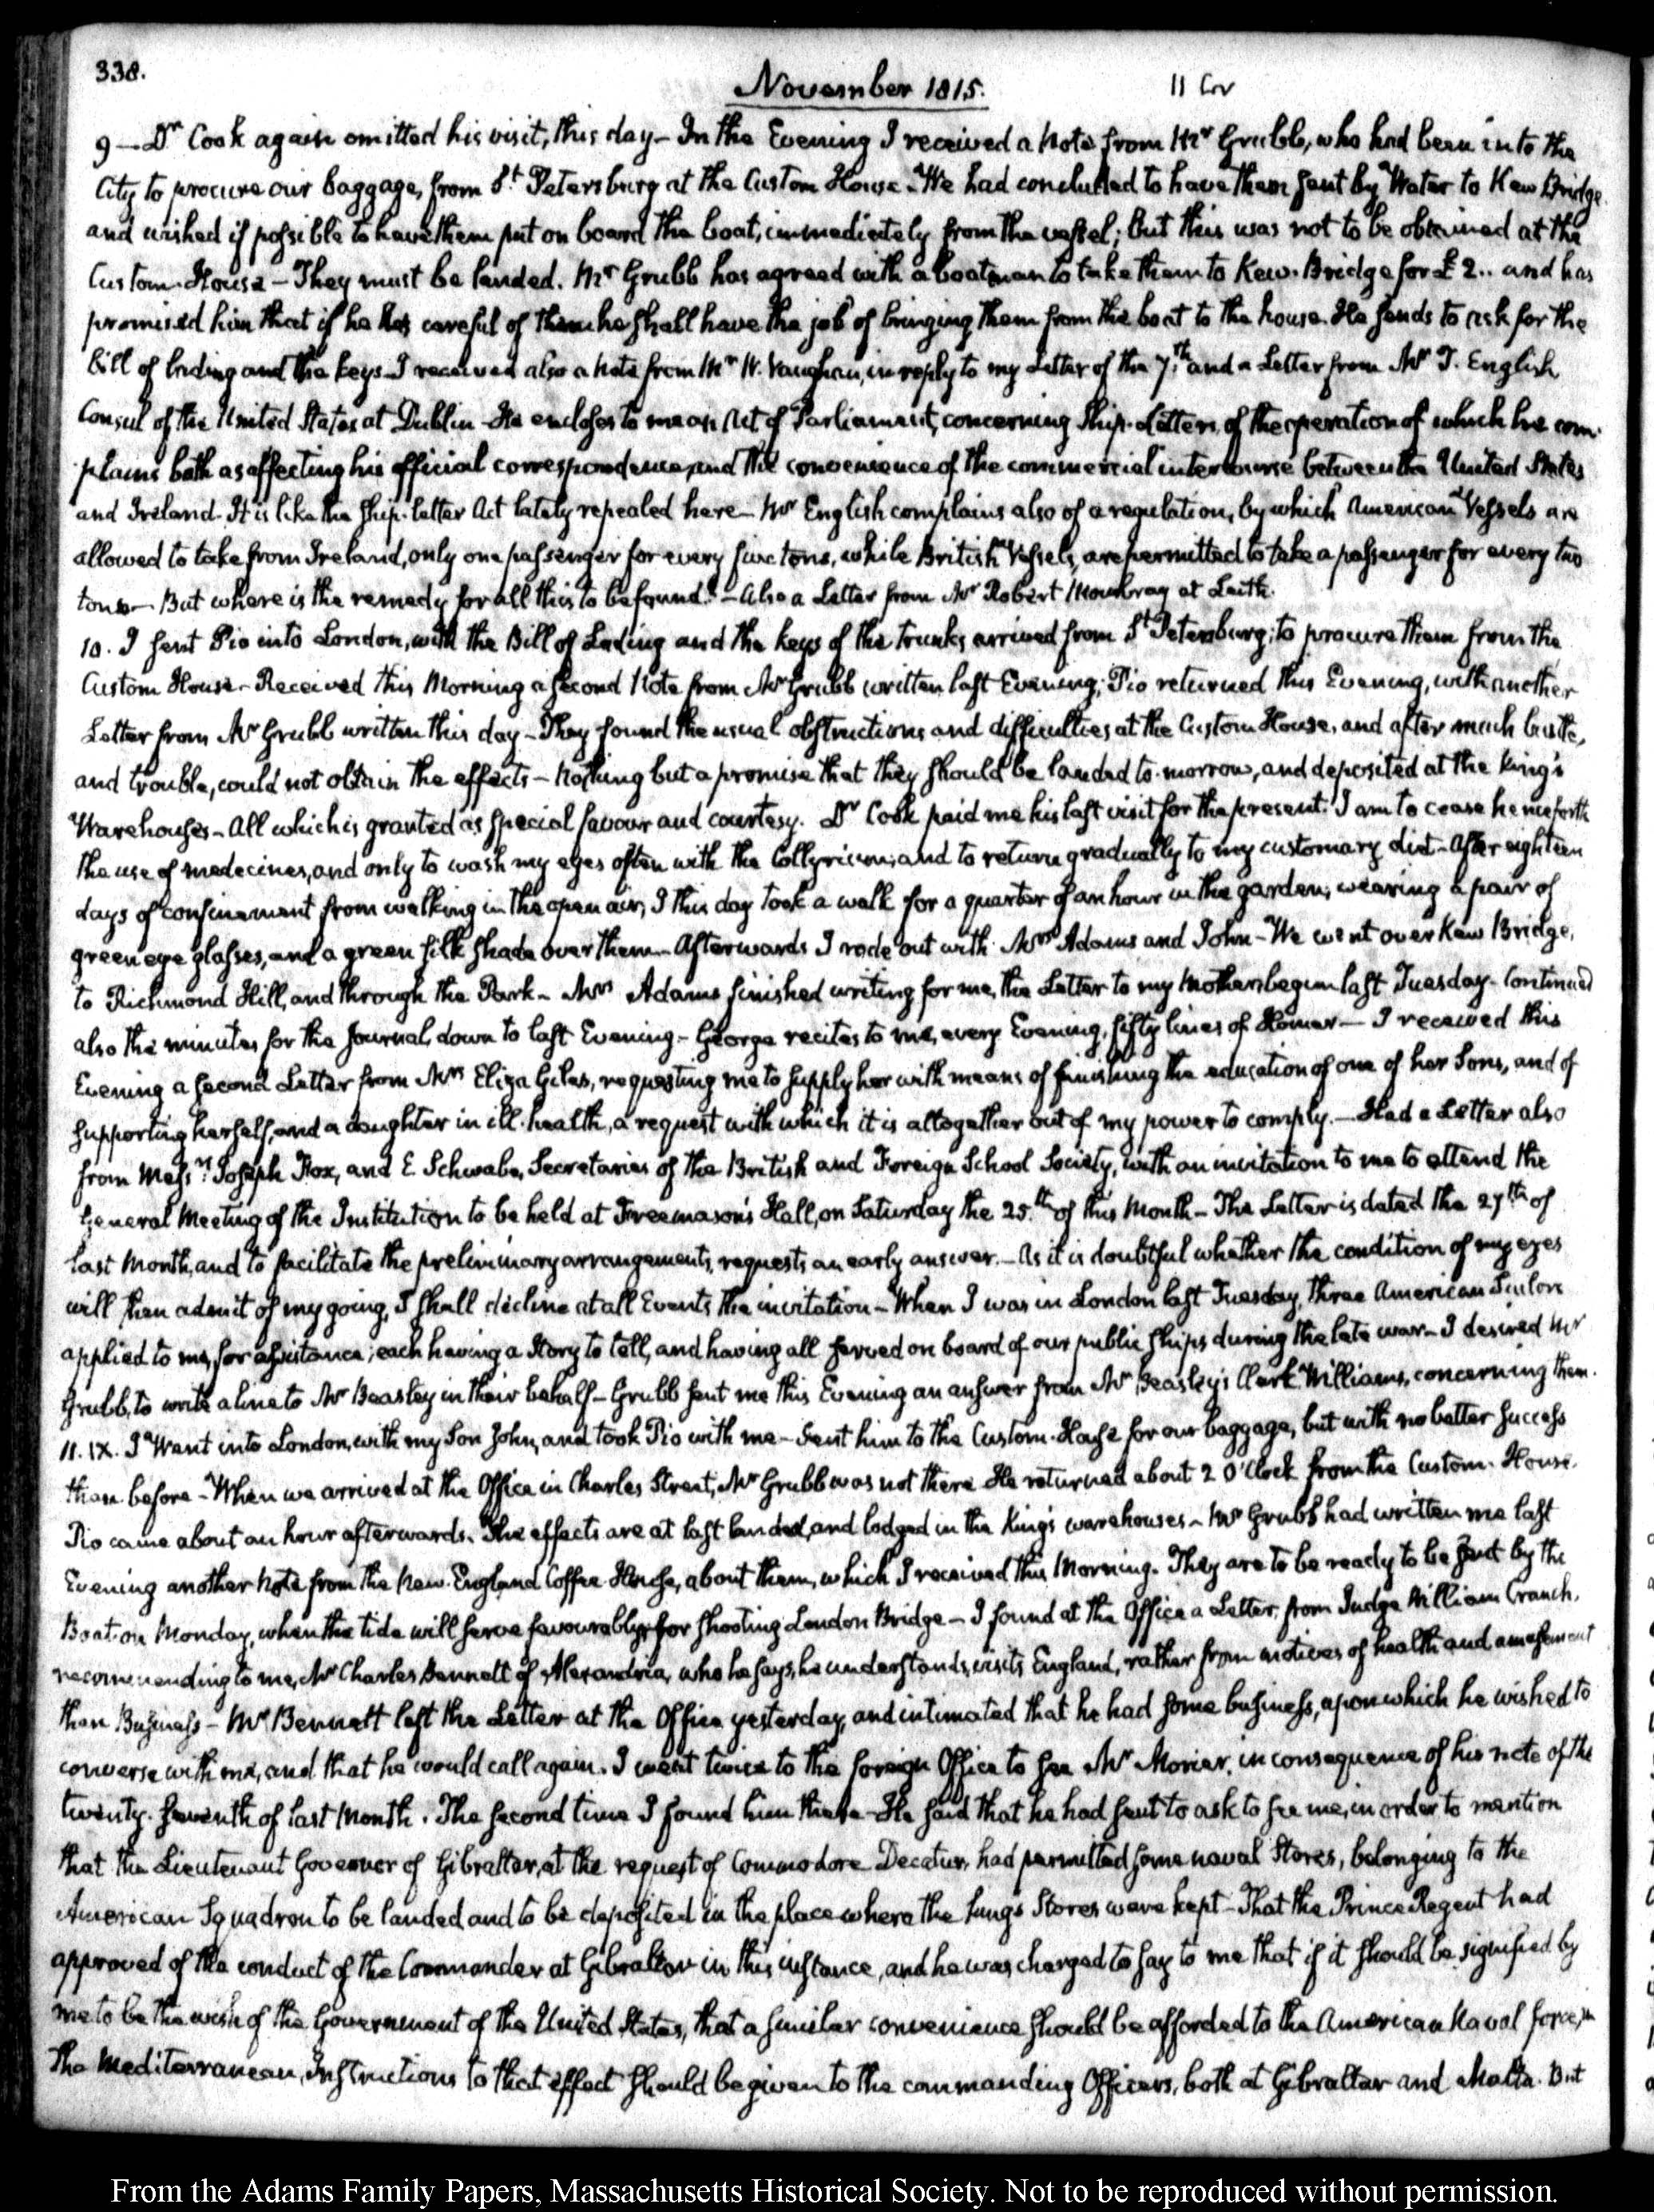 338.
November 1815.
9 — Dr Cook again omitted his visit, this day — In the Evening I received a Note from Mr Grubb, who had been into the
City to procure our baggage, from St Petersburg at the Custom House. We had concluded to have them sent by Water to Kew Bridge
and wished if possible to have them put on board the boat, immediately from the vessel; But this was not to be obtained at the
Custom-House — They must be landed. Mr Grubb has agreed with a boatman to take them to Kew-Bridge for £ 2.. and has
promised him that if he is careful of them he shall have the job of bringing them from the boat to the house. He sends to ask for the
bill of lading and the keys. I received also a Note from Mr W. Vaughan, in reply to my Letter of the 7th and a Letter from Mr T. English
Consul of the United States at Dublin. He encloses to me an Act of Parliament, concerning Ship-letters, of the operation of which he com-
plains both as affecting his official correspondence, and the convenience of the commercial intercourse between the United States
and Ireland. It is like the Ship-letter Act lately repealed here — Mr English complains also of a regulation, by which American Vessels are
allowed to take from Ireland, only one passenger for every five tons, while British Vessels, are permitted to take a passenger for every two
tons — But where is the remedy for all this to be found? — Also a Letter from Mr Robert Mowbray at Leith.
10. I sent Pio into London, with the Bill of Lading and the keys of the trunks, arrived from St Petersburg; to procure them from the
Custom House — Received this Morning a second Note from Mr Grubb written last Evening; Pio returned this Evening, with another
Letter from Mr Grubb written this day — They found the usual obstructions and difficulties at the Custom House, and after much bustle,
and trouble, could not obtain the effects — Nothing but a promise that they should be landed to-morrow, and deposited at the King's
Warehouses — All which is granted as special favour and courtesy. Dr Cook paid me his last visit for the present. I am to cease henceforth
the use of medecines, and only to wash my eyes often with the Collyrium; and to return gradually to my customary diet — After eighteen
days of confinement from walking in the open air, I this day took a walk for a quarter of an hour in the garden, wearing a pair of
green eye glasses, and a green silk shade over them — Afterwards I rode out with Mrs Adams and John — We went over Kew Bridge,
to Richmond Hill, and through the Park — Mrs Adams finished writing for me, the Letter to my Mother, begun last Tuesday. Continued
also the minutes for the Journal, down to last Evening — George recites to me, every Evening, fifty lines of Homer — I received this
Evening a second Letter from Mrs Eliza Giles, requesting me to supply her with means of finishing the education of one of her Sons, and of
supporting herself, and a daughter in ill-health, a request with which it is altogether out of my power to comply. — Had a Letter also
from Messrs Joseph Fox, and E. Schwabe, Secretaries of the British and Foreign School Society, with an invitation to me to attend the
General Meeting of the Institution to be held at Freemason's Hall, on Saturday the 25th of this Month — The Letter is dated the 27th of
last Month, and to facilitate the preliminary arrangements, requests an early answer. — As it is doubtful whether the condition of my eyes
will then admit of my going, I shall decline at all Events the invitation — When I was in London last Tuesday, three American Sailors
applied to me, for assistance; each having a Story to tell, and having all served on board of our public ships during the late war — I desired Mr
Grubb, to write a line to Mr Beasley in their behalf — Grubb sent me this Evening an answer from Mr Beasley's Clerk Williams, concerning them.
11. IX. I Went into London, with my Son John, and took Pio with me — Sent him to the Custom-House for our baggage, but with no better success
than before — When we arrived at the Office in Charles Street, Mr Grubb was not there. He returned about 2 O'Clock from the Custom-House.
Pio came about an hour afterwards. The effects are at last landed, and lodged in the King's warehouses — Mr Grubb had written me last
Evening another Note from the New-England Coffee House, about them, which I received this Morning. They are to be ready to be sent by the
Boat on Monday, when the tide will serve favourably for shooting London Bridge — I found at the Office a Letter, from Judge William Cranch,
recommending to me, Mr Charles Bennett of Alexandria, who he says, he understands, visits England, rather from motives of health and amusement
than Business — Mr Bennett left the Letter at the Office yesterday, and intimated that he had some business, upon which he wished to
converse with me, and that he would call again. I went twice to the foreign Office to see Mr Morier, in consequence of his note of the
twenty-seventh of last Month. The second time I found him there — He said that he had sent to ask to see me, in order to mention
that the Lieutenant Governor of Gibraltar, at the request of Commodore Decatur, had permitted some naval Stores, belonging to the
American Squadron to be landed and to be deposited in the place where the king's Stores were kept — That the Prince Regent had
approved of the conduct of the Commander at Gibraltar in this instance, and he was charged to say to me that if it should be signified by
me to be the wish of the Government of the United States, that a similar convenience should be afforded to the American Naval force, in
the Mediterranean, Instructions to that effect should be given to the commanding Officers, both at Gibraltar and Malta. But
From the Adams Family Papers, Massachusetts Historical Society. Not to be reproduced without permission.